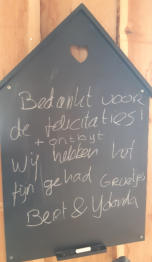 Bedankt voor
de felicitaties!
+ ontbyt
Wij hebben het
fijn gehad Groetjes
Bert & Yolanda